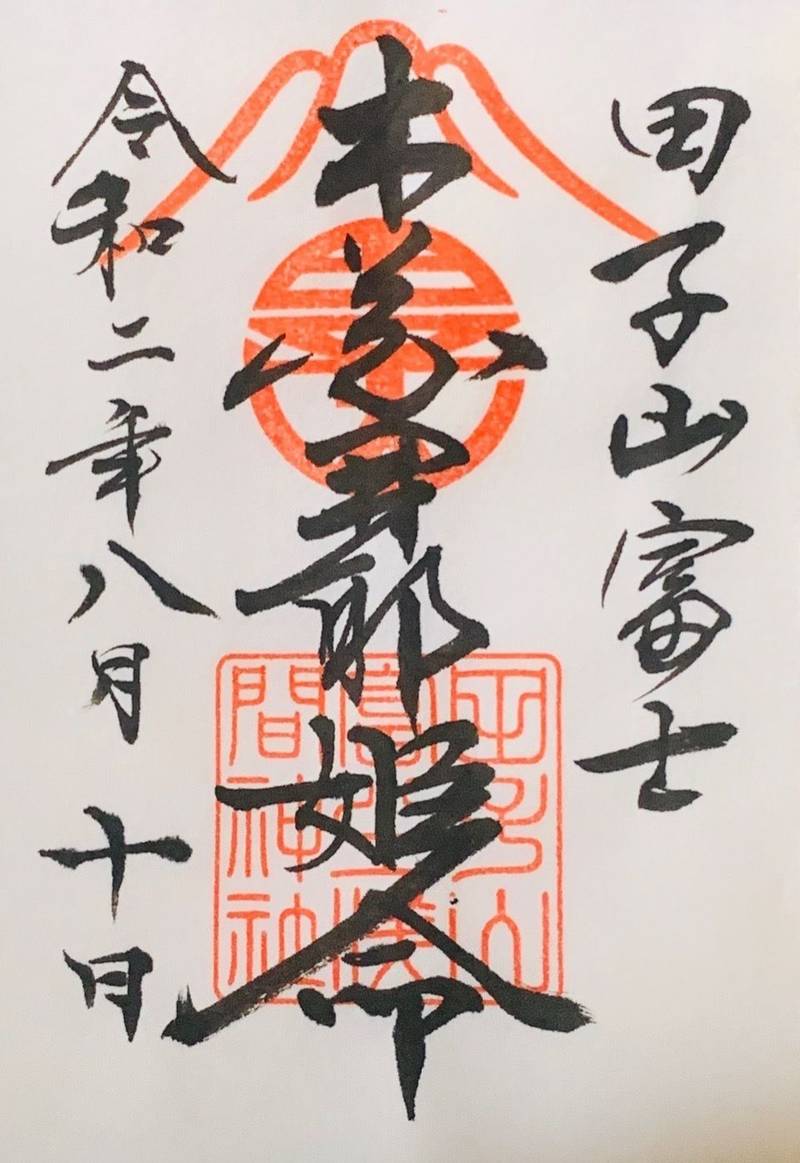 田子山富士
木花開耶姫命
令和二年八月十日
田子山
富士浅
間神社